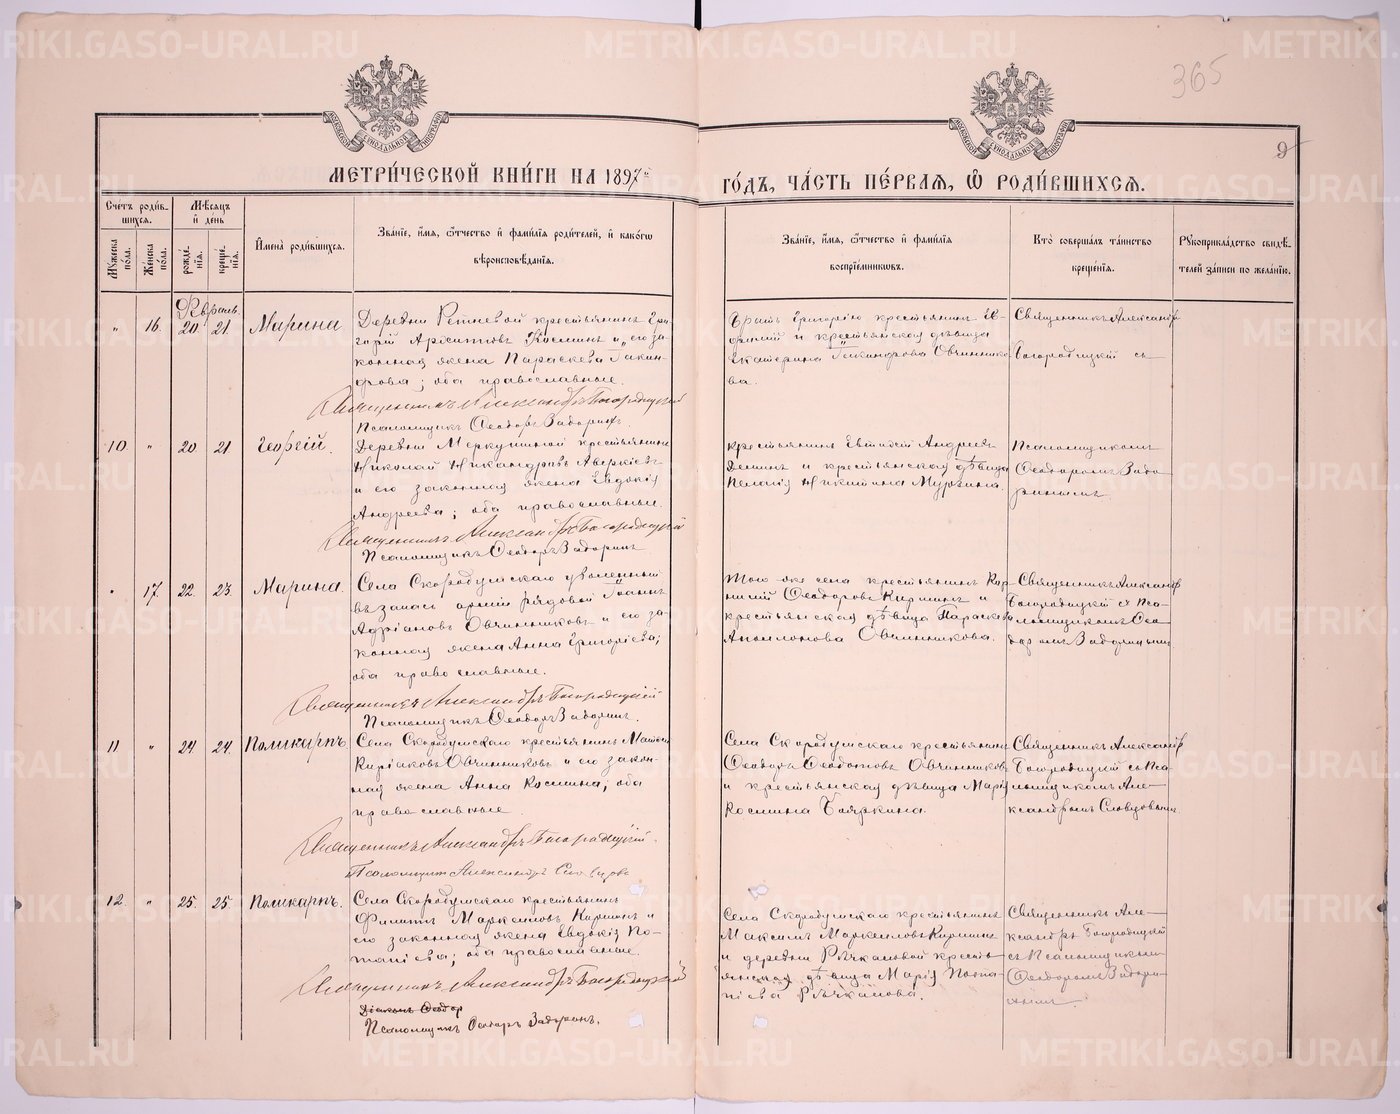 365
9
МЕТРИ́ЧЕСКОЙ КНИ́ГИ НА 1897й
ГО́ДЪ, ЧА́СТЬ ПЕ́РВАЯ, Ѡ РОДИ́ВШИХСЯ.
Сче́тъ роди́в-
шихся.
Мѣ́сяцъ
и де́нь
Му́жеска
по́ла.
Же́нска
по́ла.
рожде́-
нія.
креще́-
нія.
Имена̀ роди́вшихся.
Зва́ніе, и́мя, ѻ́тчество и фами́лія роди́телей, и како́гѡ
вѣроисповѣ́данія.
Зва́ніе, и́мя, ѻ́тчество и фами́лія
воспріе́мниковъ.
Кто̀ соверша́лъ та́инство
креще́нія.
Рукоприкла́дство свидѣ́-
телей за́писи по жела́нію.
Февраль.
" 16. 20 21 Марина
Деревни Ретневой крестьянинъ Гри-
горій Космин и его за-
конная жена Параскева Іакин-
фова; оба православные.
Священникъ Александръ Богородицкій
Псаломщикъ Ѳеодоръ Задоринъ.
Братъ Григорію крестьянин Ев-
фимій и крестьянская дѣвица
Екатерина Іакинфова Овчиннико-
ва.
Священникъ Александръ
Богородицкій съ
10. " 20 21 Георгій.
Деревни Меркушиной крестьянинъ
Николай Никандровъ Аверкіевъ
и его законная жена Евдокія
Андреева; оба православные.
Священникъ Александръ Богородицкій
Псаломщикъ Ѳеодоръ Задоринъ
крестьянинъ Евтихій Андреевъ
и крестьянская дѣвица
Пелагія Никитина Мурзина.
Псаломщикомъ
Ѳеодоромъ Задо-
ринымъ.
" 17. 22. 23. Марина.
Села Скородумскаго уволенный
въ запасъ арміи рядовой Іоаннъ
Адріановъ Овчинниковъ и его за-
конная жена Анна Григоріева;
оба православные.
Священникъ Александръ Богородицкій
Псаломщикъ Ѳеодоръ Задоринъ.
Того же села крестьянинъ Кор-
нилій Ѳеодоровъ Киршин и
крестьянская дѣвица Параскева
Аполлонова Овчинникова.
Священникъ Александръ
Богородицкій съ Пса-
ломщикомъ Ѳео-
доромъ Задоринымъ
11 " 24 24. Поликарпъ.
Села Скородумскаго крестьянинъ Матвей
Киріаковъ Овчинниковъ и его закон-
ная жена Анна Космина; оба
православные
Священникъ Александръ Богородицкій.
Псаломщик Александръ Словцовъ
Села Скородумскаго крестьянинъ
Ѳеодоръ Ѳеодотовъ Овчинниковъ
и крестьянская дѣвица Марія
Космина Бояркина.
Священникъ Александръ
Богородицкій съ Пса-
ломщикомъ Але-
ксандромъ Словцовымъ.
12. " 25. 25. Поликарпъ.
Села Скородумскаго крестьянинъ
Филиппъ Маркелловъ Киршин и
его законная жена Евдокія По-
тапіева; оба православные.
Священникъ Александръ Богородицкій
Діаконъ Ѳеодор
Псаломщикъ Ѳеодоръ Задоринъ.
Села Скородумскаго крестьянинъ
Максимъ Маркелловъ Киршинъ
и деревни Рѣчкаловой кресть-
янская дѣвица Марія Пота-
піева Рѣчкалова.
Священникъ Але-
ксандръ Богородицкій
съ Псаломщикомъ
Ѳеодоромъ Задори-
нымъ
METRIKI.GASO-URAL.RU